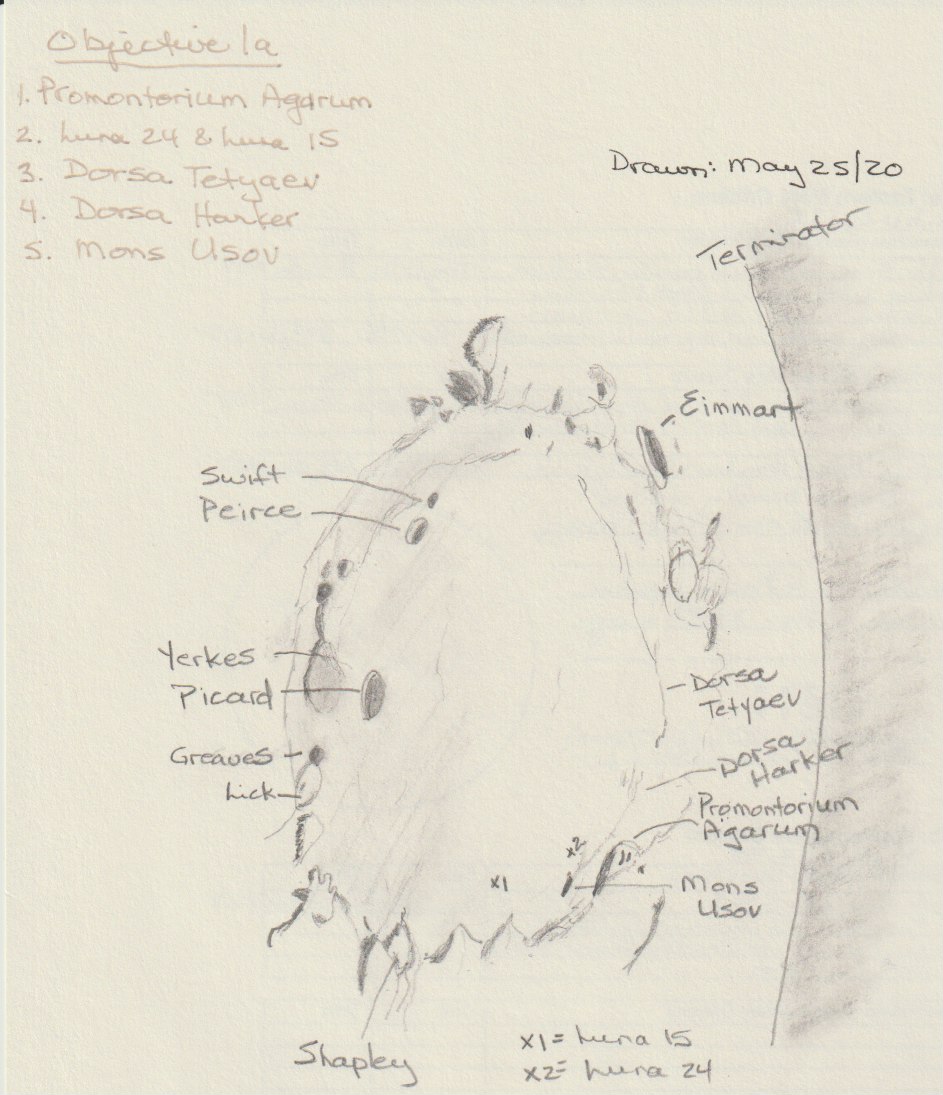 Objective 1a
1. Promontorium Agarum
2. Luna 24 & Luna 15
3. Dorsa Tetyaev
4. Dorsa Harker
5. Mons Usov
Drawn: May 25/20
Terminator
Eimmart
Swift
Peirce
Yerkes
Picard
Dorsa
Tetyaev
Greaves
Lick
Dorsa
Harker
Promontorium
Agarum
x2
x1
Mons
Usov
Shapley
x1= Luna 15
x2= Luna 24